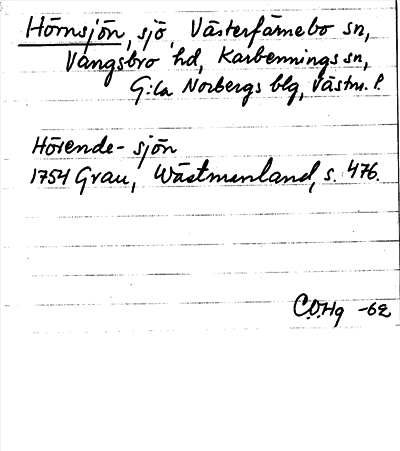 Hörnsjön, sjö, Västerfärnebo sn,
Vangsbro hd, Karbennings sn,
G:la Norbergs blg, Västm. l.
Hörende-sjön
1754 Grau, Wästmanland, s. 476.
C.O.Hg -62